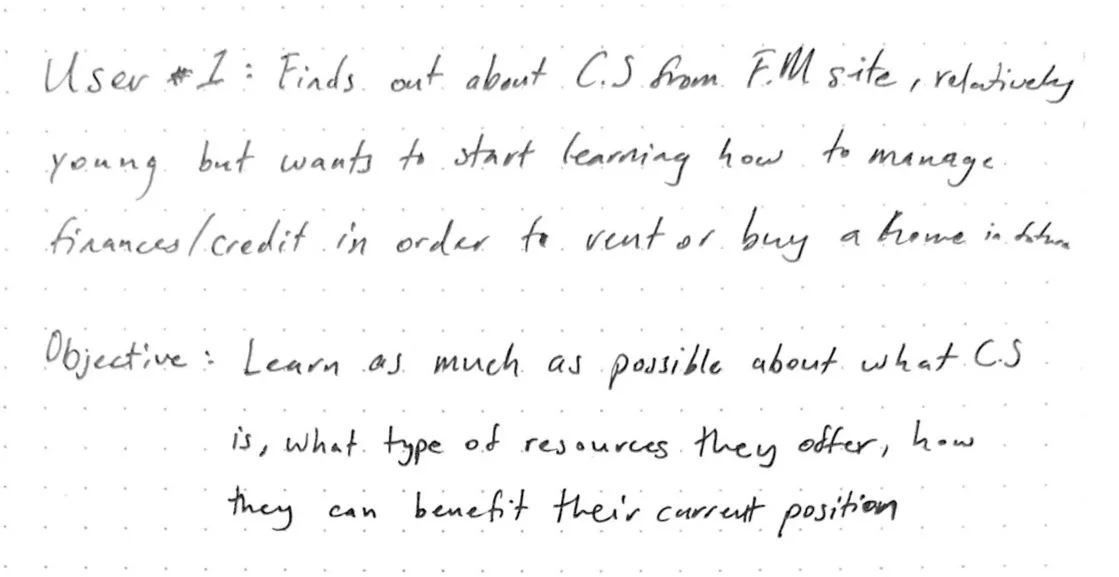 User #1: Finds out about C.S from F.M site, relatively
young but wants to start learning how to manage
finances/credit in order to rent or buy a home in future
Objective: Learn as much as possible about what C.S
is, what type of resources they offer, how
they can benefit their current position